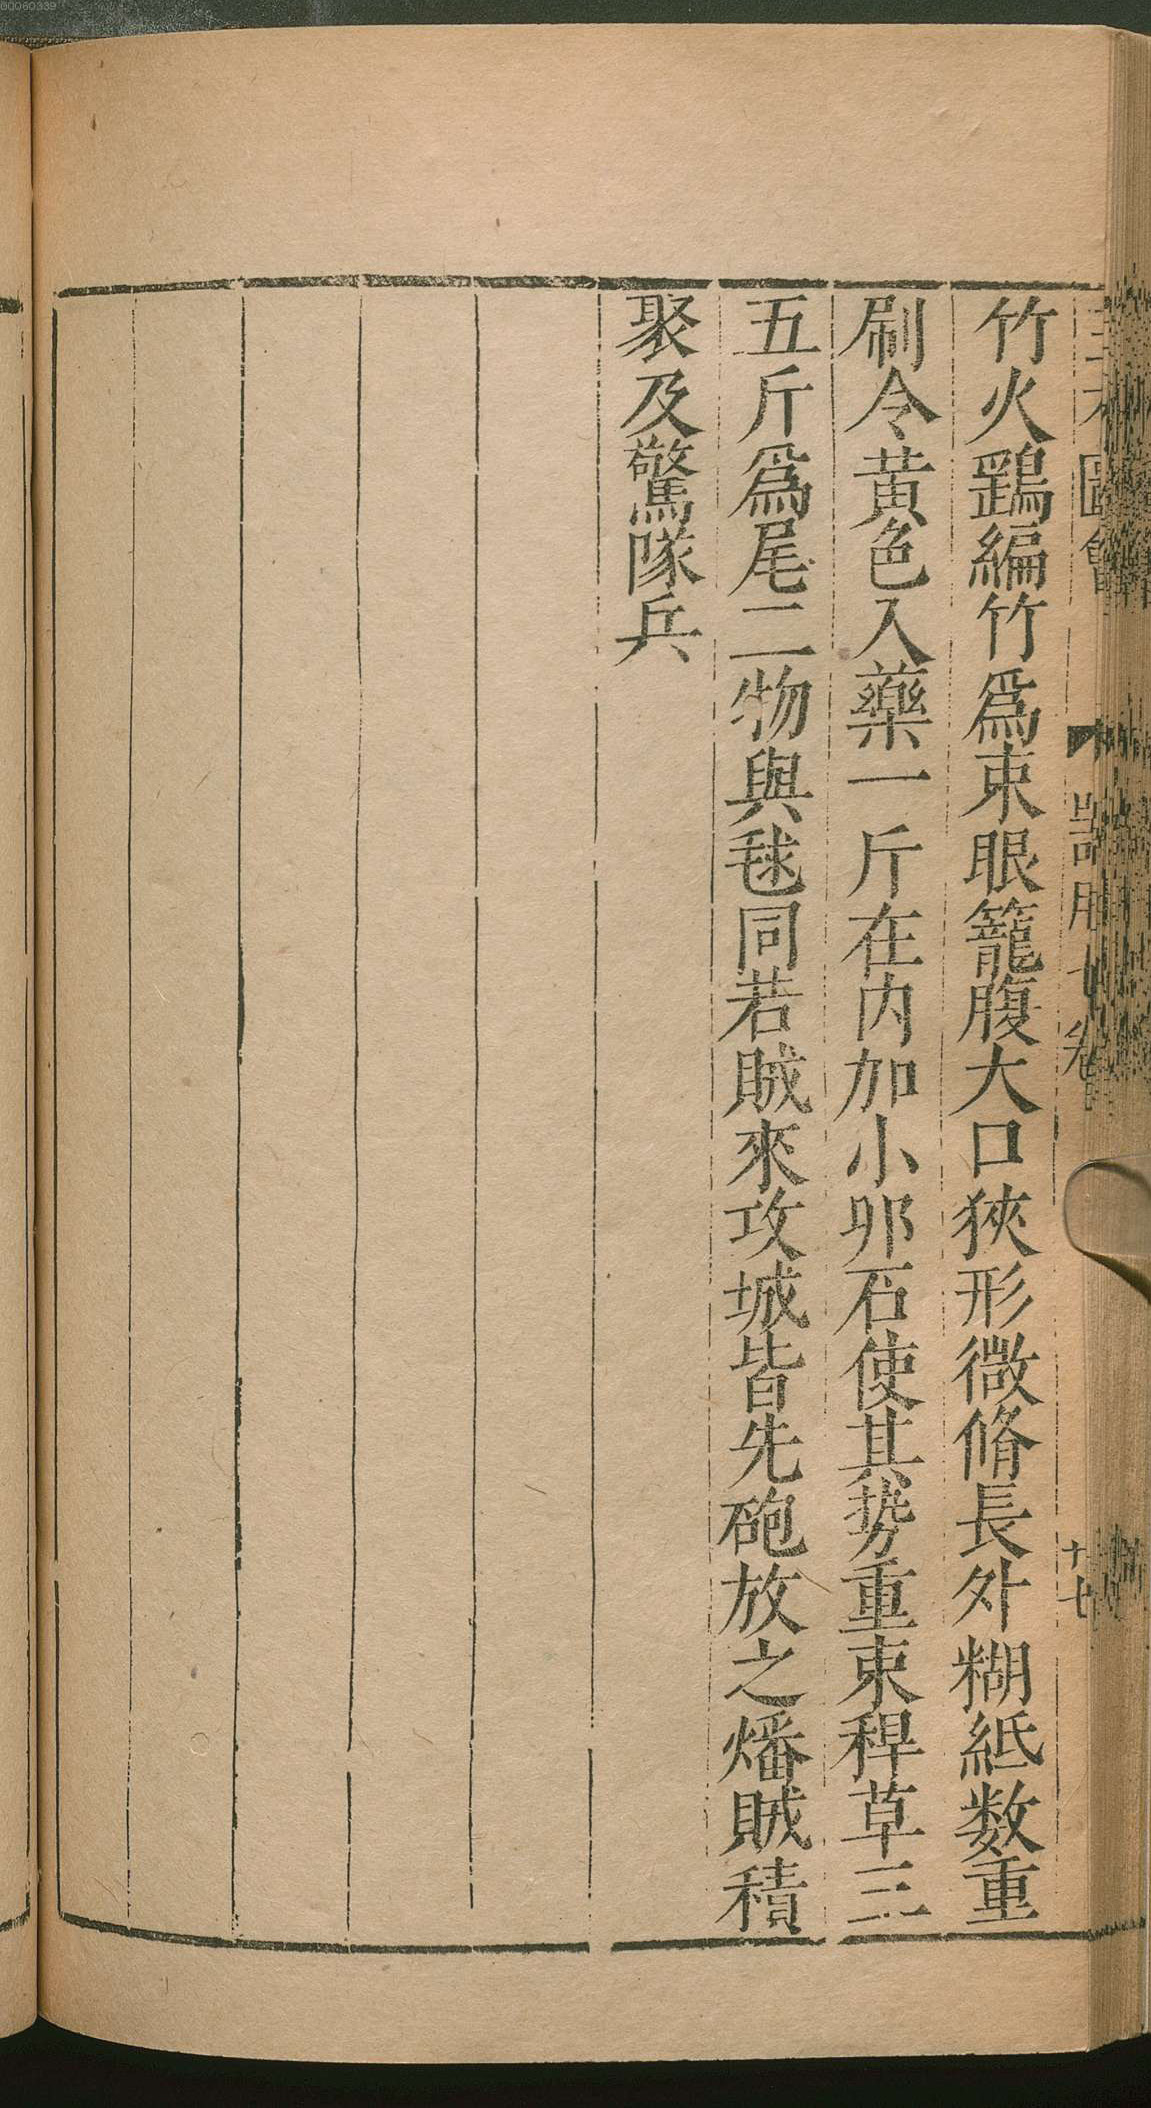 竹火鷄編竹爲束眼籠腹大口狹形微脩長外糊紙数重
刷令黄色入藥一斤在内加小卵石使其势重束稈草三
五斤爲尾二物與毬同若賊來攻城皆先砲放之燔賊積
聚及驚隊兵
圖會
十七
00060339